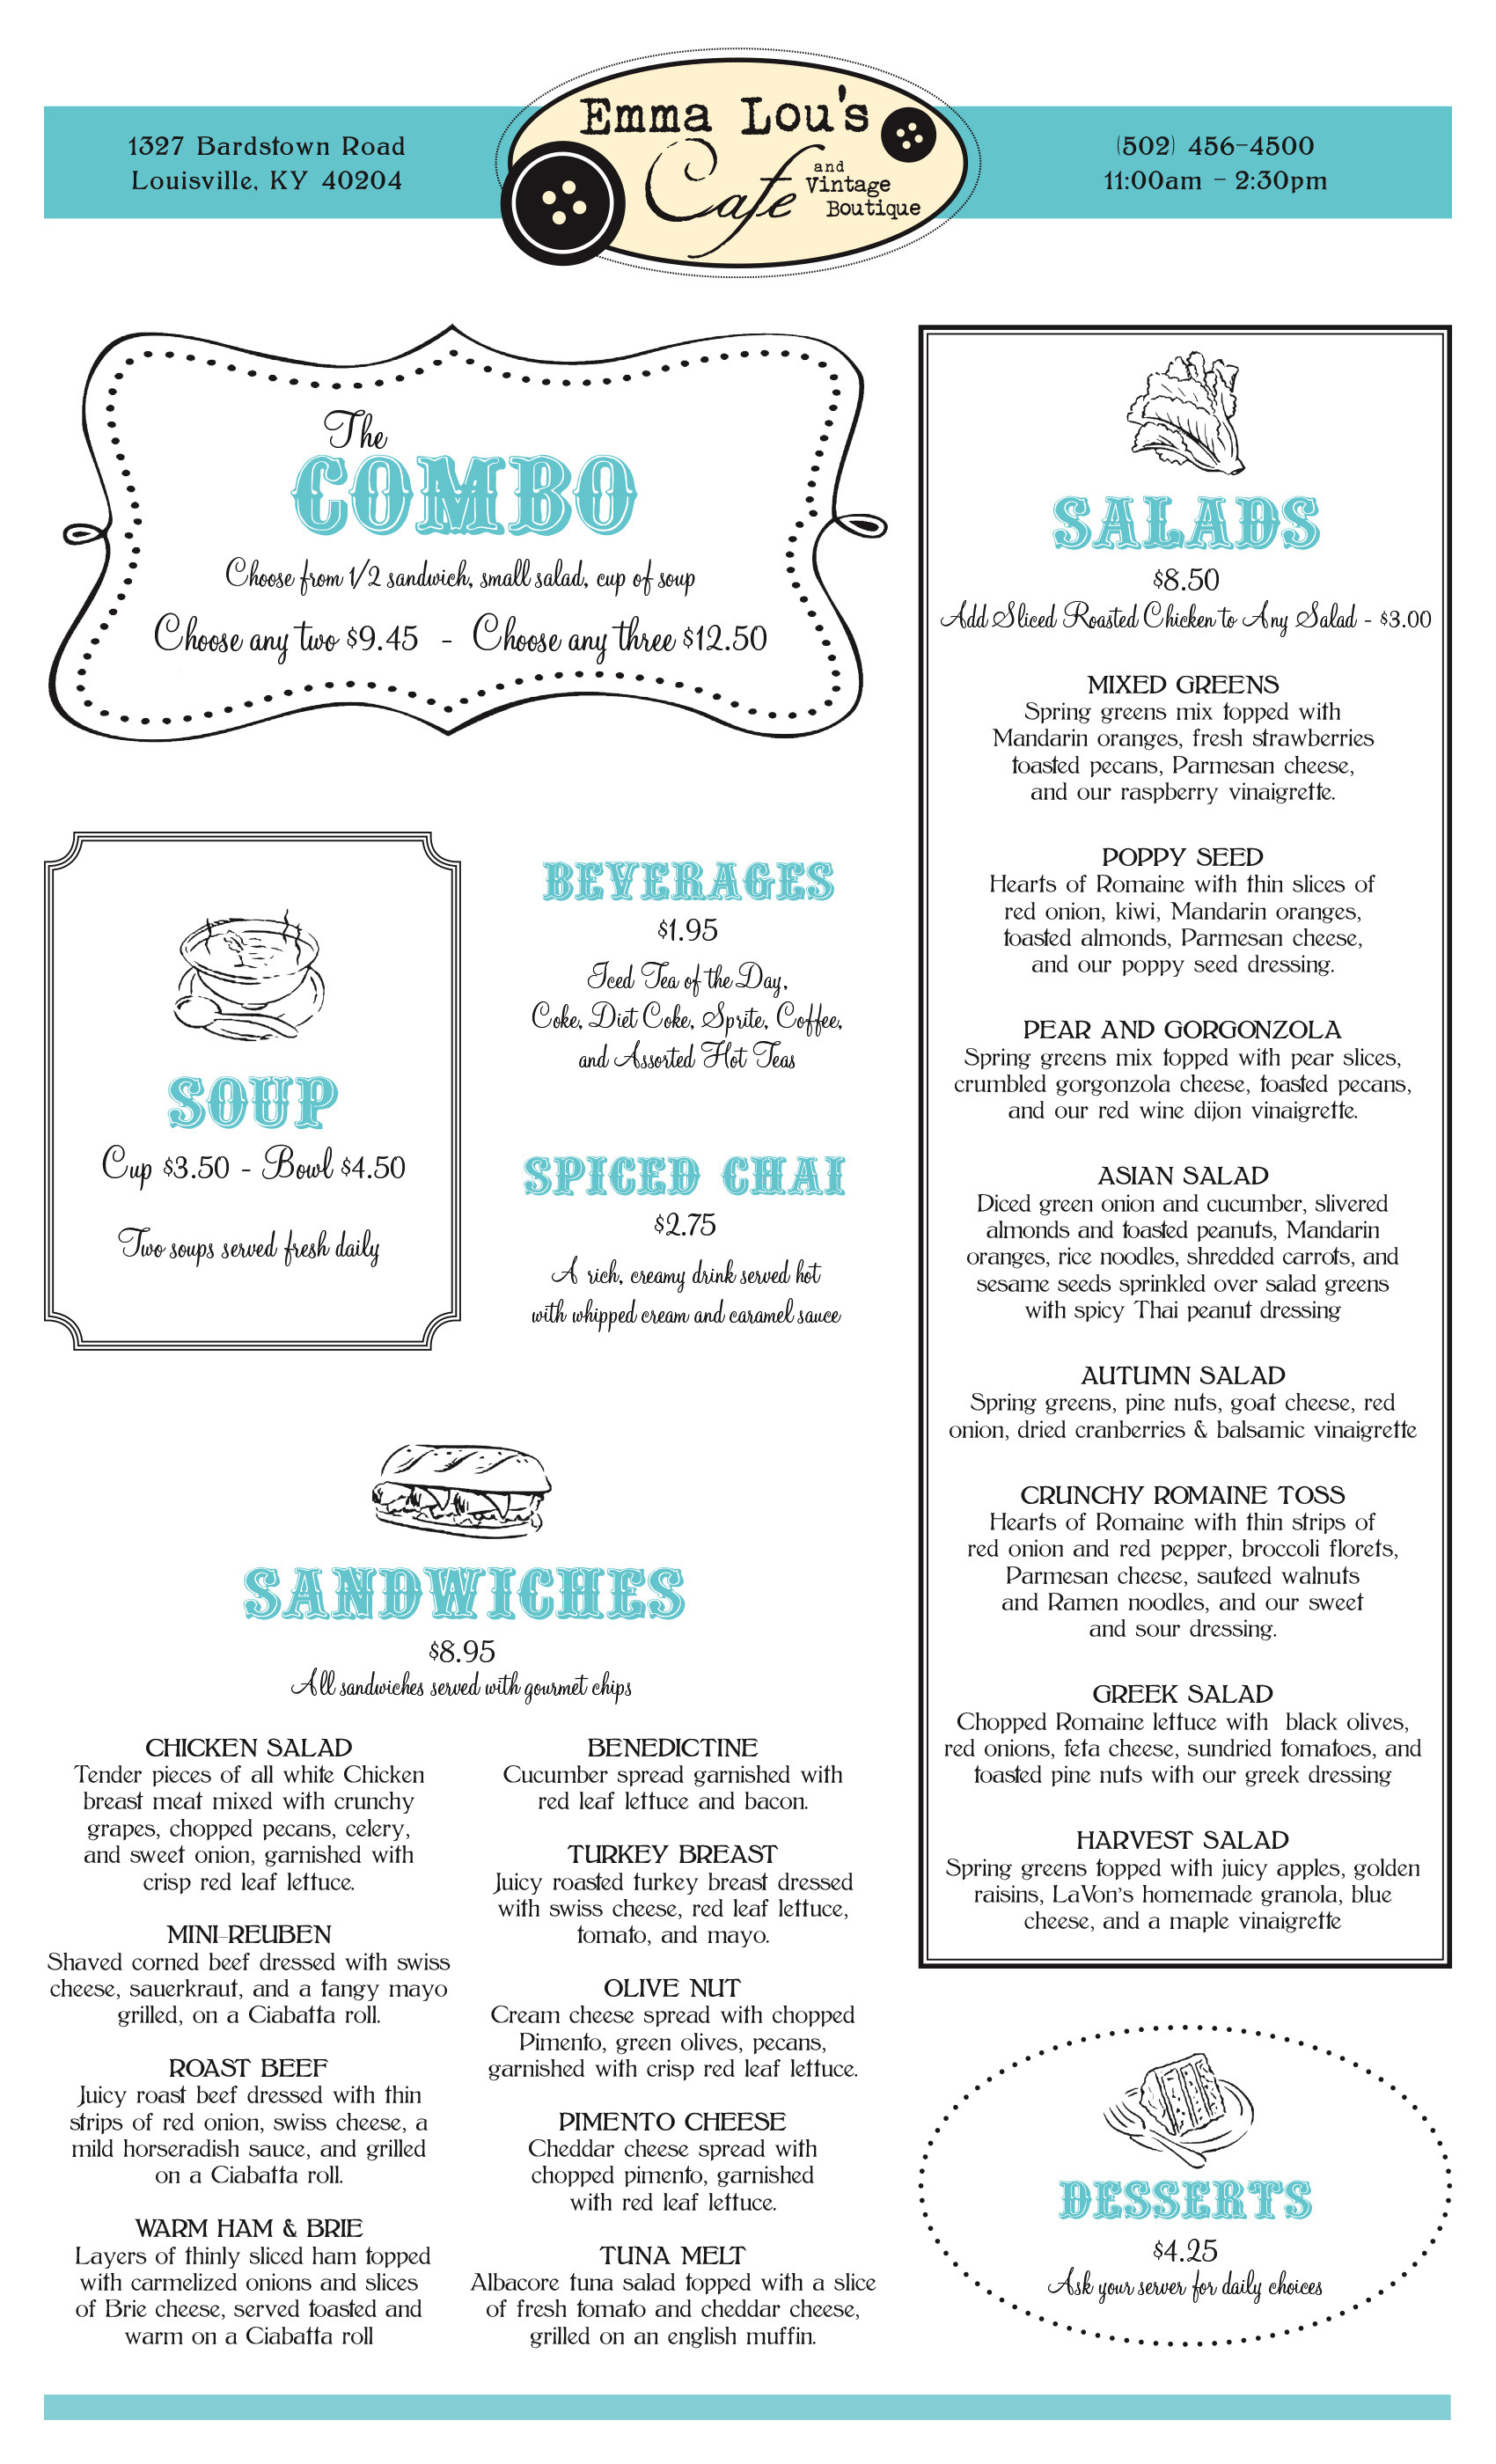 1327 Bardstown Road
Louisville, KY 40204
Emma Lou's
Cafe
and
Vintage
Boutique
(502) 456-4500
11:00am - 2:30pm
The
COMBO
Choose from 1/2 sandwich, small salad, cup of soup
Choose any two $9.45 - Choose any three $12.50
SOUP
Cup $3.50 - Bowl $4.50
Two soups served fresh daily
BEVERAGES
$1.95
Iced Tea of the Day,
Coke, Diet Coke, Sprite, Coffee,
and Assorted Hot Teas
SPICED CHAI
$2.75
A rich, creamy drink served hot
with whipped cream and caramel sauce
SANDWICHES
$8.95
All sandwiches served with gourmet chips
CHICKEN SALAD
Tender pieces of all white Chicken
breast meat mixed with crunchy
grapes, chopped pecans, celery,
and sweet onion, garnished with
crisp red leaf lettuce.
MINI-REUBEN
Shaved corned beef dressed with swiss
cheese, sauerkraut, and a tangy mayo
grilled, on a Ciabatta roll.
ROAST BEEF
Juicy roast beef dressed with thin
strips of red onion, swiss cheese, a
mild horseradish sauce, and grilled
on a Ciabatta roll.
WARM HAM & BRIE
Layers of thinly sliced ham topped
with carmelized onions and slices
of Brie cheese, served toasted and
warm on a Ciabatta roll
BENEDICTINE
Cucumber spread garnished with
red leaf lettuce and bacon.
TURKEY BREAST
Juicy roasted turkey breast dressed
with swiss cheese, red leaf lettuce,
tomato, and mayo.
OLIVE NUT
Cream cheese spread with chopped
Pimento, green olives, pecans,
garnished with crisp red leaf lettuce.
PIMENTO CHEESE
Cheddar cheese spread with
chopped pimento, garnished
with red leaf lettuce.
TUNA MELT
Albacore tuna salad topped with a slice
of fresh tomato and cheddar cheese,
grilled on an english muffin.
SALADS
$8.50
Add Sliced Roasted Chicken to Any Salad - $3.00
MIXED GREENS
Spring greens mix topped with
Mandarin oranges, fresh strawberries
toasted pecans, Parmesan cheese,
and our raspberry vinaigrette.
POPPY SEED
Hearts of Romaine with thin slices of
red onion, kiwi, Mandarin oranges,
toasted almonds, Parmesan cheese,
and our poppy seed dressing.
PEAR AND GORGONZOLA
Spring greens mix topped with pear slices,
crumbled gorgonzola cheese, toasted pecans,
and our red wine dijon vinaigrette.
ASIAN SALAD
Diced green onion and cucumber, slivered
almonds and toasted peanuts, Mandarin
oranges, rice noodles, shredded carrots, and
sesame seeds sprinkled over salad greens
with spicy Thai peanut dressing
AUTUMN SALAD
Spring greens, pine nuts, goat cheese, red
onion, dried cranberries & balsamic vinaigrette
CRUNCHY ROMAINE TOSS
Hearts of Romaine with thin strips of
red onion and red pepper, broccoli florets,
Parmesan cheese, sauteed walnuts
and Ramen noodles, and our sweet
and sour dressing.
GREEK SALAD
Chopped Romaine lettuce with black olives,
red onions, feta cheese, sundried tomatoes, and
toasted pine nuts with our greek dressing
HARVEST SALAD
Spring greens topped with juicy apples, golden
raisins, LaVon's homemade granola, blue
cheese, and a maple vinaigrette
DESSERTS
$4.25
Ask your server for daily choices